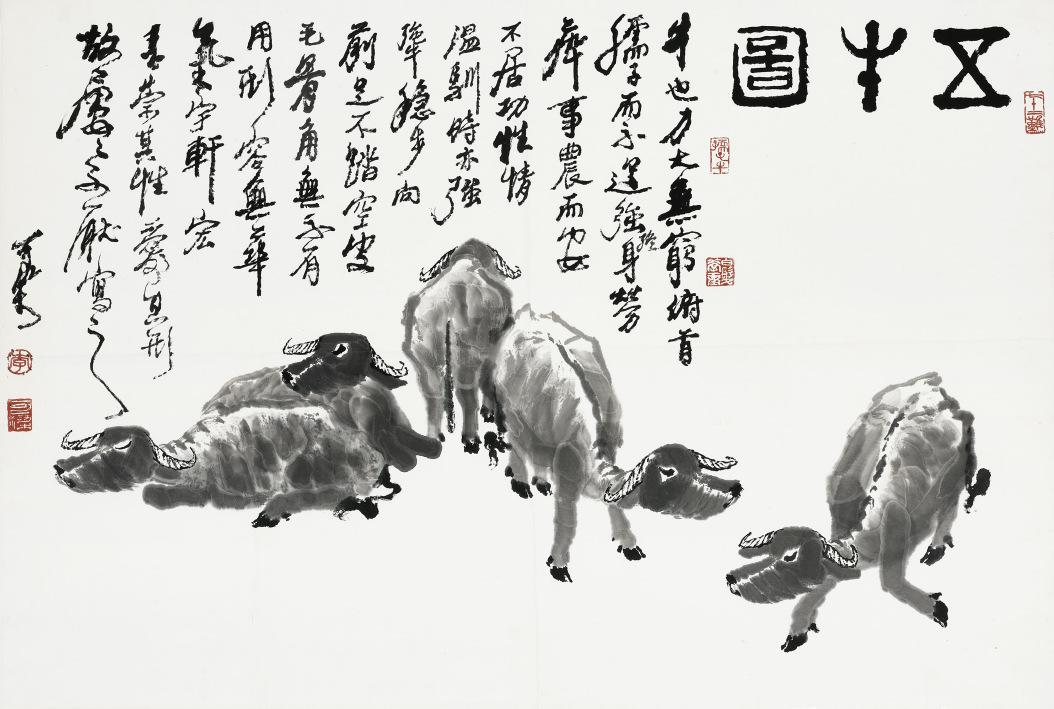 五牛圖
牛也力大無窮俯首
孺子而不逞強終身勞
瘁事農而安
不居功性情
溫馴時亦強
犟穩步向
前足不踏空皮
毛骨角無不有
用形容無華
氣宇軒宏
吾崇其性愛其形
故屢屢不厭寫之
可染
李